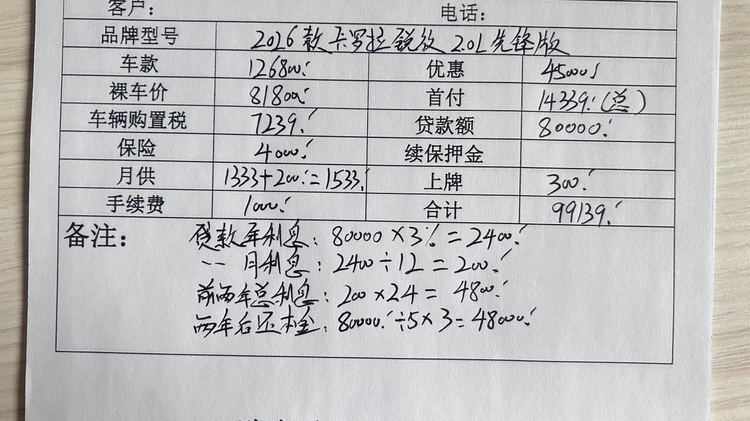 客户： 电话：
品牌型号 2026款卡罗拉锐放 2.0L先锋版
车款 126800 优惠 45000
裸车价 81800 首付 14339（总）
车辆购置税 7239 贷款额 80000
保险 4000 续保押金
月供 1333+200=1533 上牌 300
手续费 1000 合计 99139
备注： 贷款年利息：80000×3%=2400
一月利息：2400÷12=200
前两年总利息：200×24=4800
两年后还本金：80000÷5×3=48000